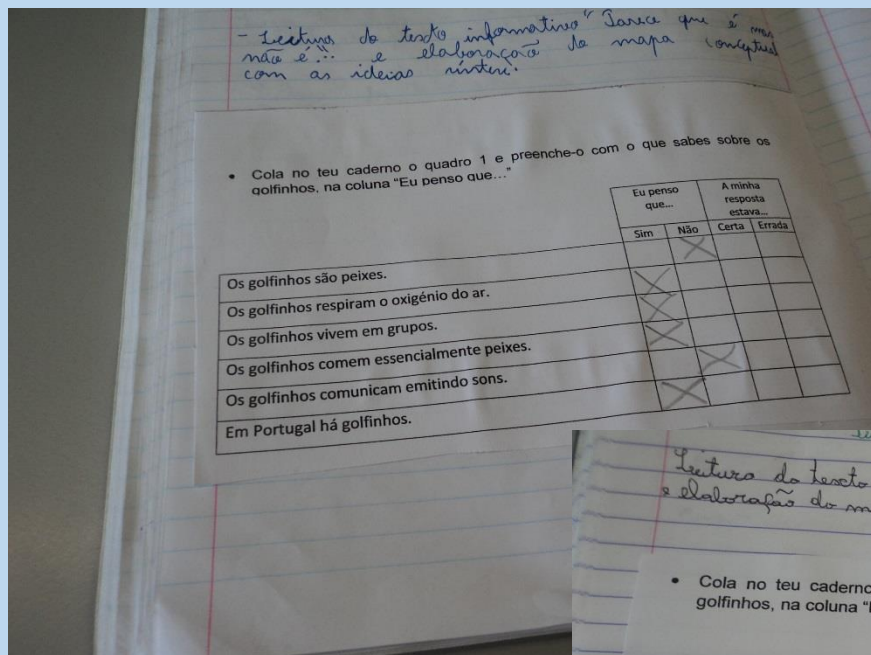 - Leitura do texto informativo "Parece que é mas
não é!!" e elaboração do mapa conceptual
com as ideias
• Cola no teu caderno o quadro 1 e preenche-o com o que sabes sobre os
golfinhos, na coluna "Eu penso que…"
Eu penso que... A minha resposta estava...
Sim Não Certa Errada
Os golfinhos são peixes.
Os golfinhos respiram o oxigénio do ar.
Os golfinhos vivem em grupos.
Os golfinhos comem essencialmente peixes.
Os golfinhos comunicam emitindo sons.
Em Portugal há golfinhos.
Leitura do texto
e elaboração do m
• Cola no teu caderno
golfinhos, na coluna "